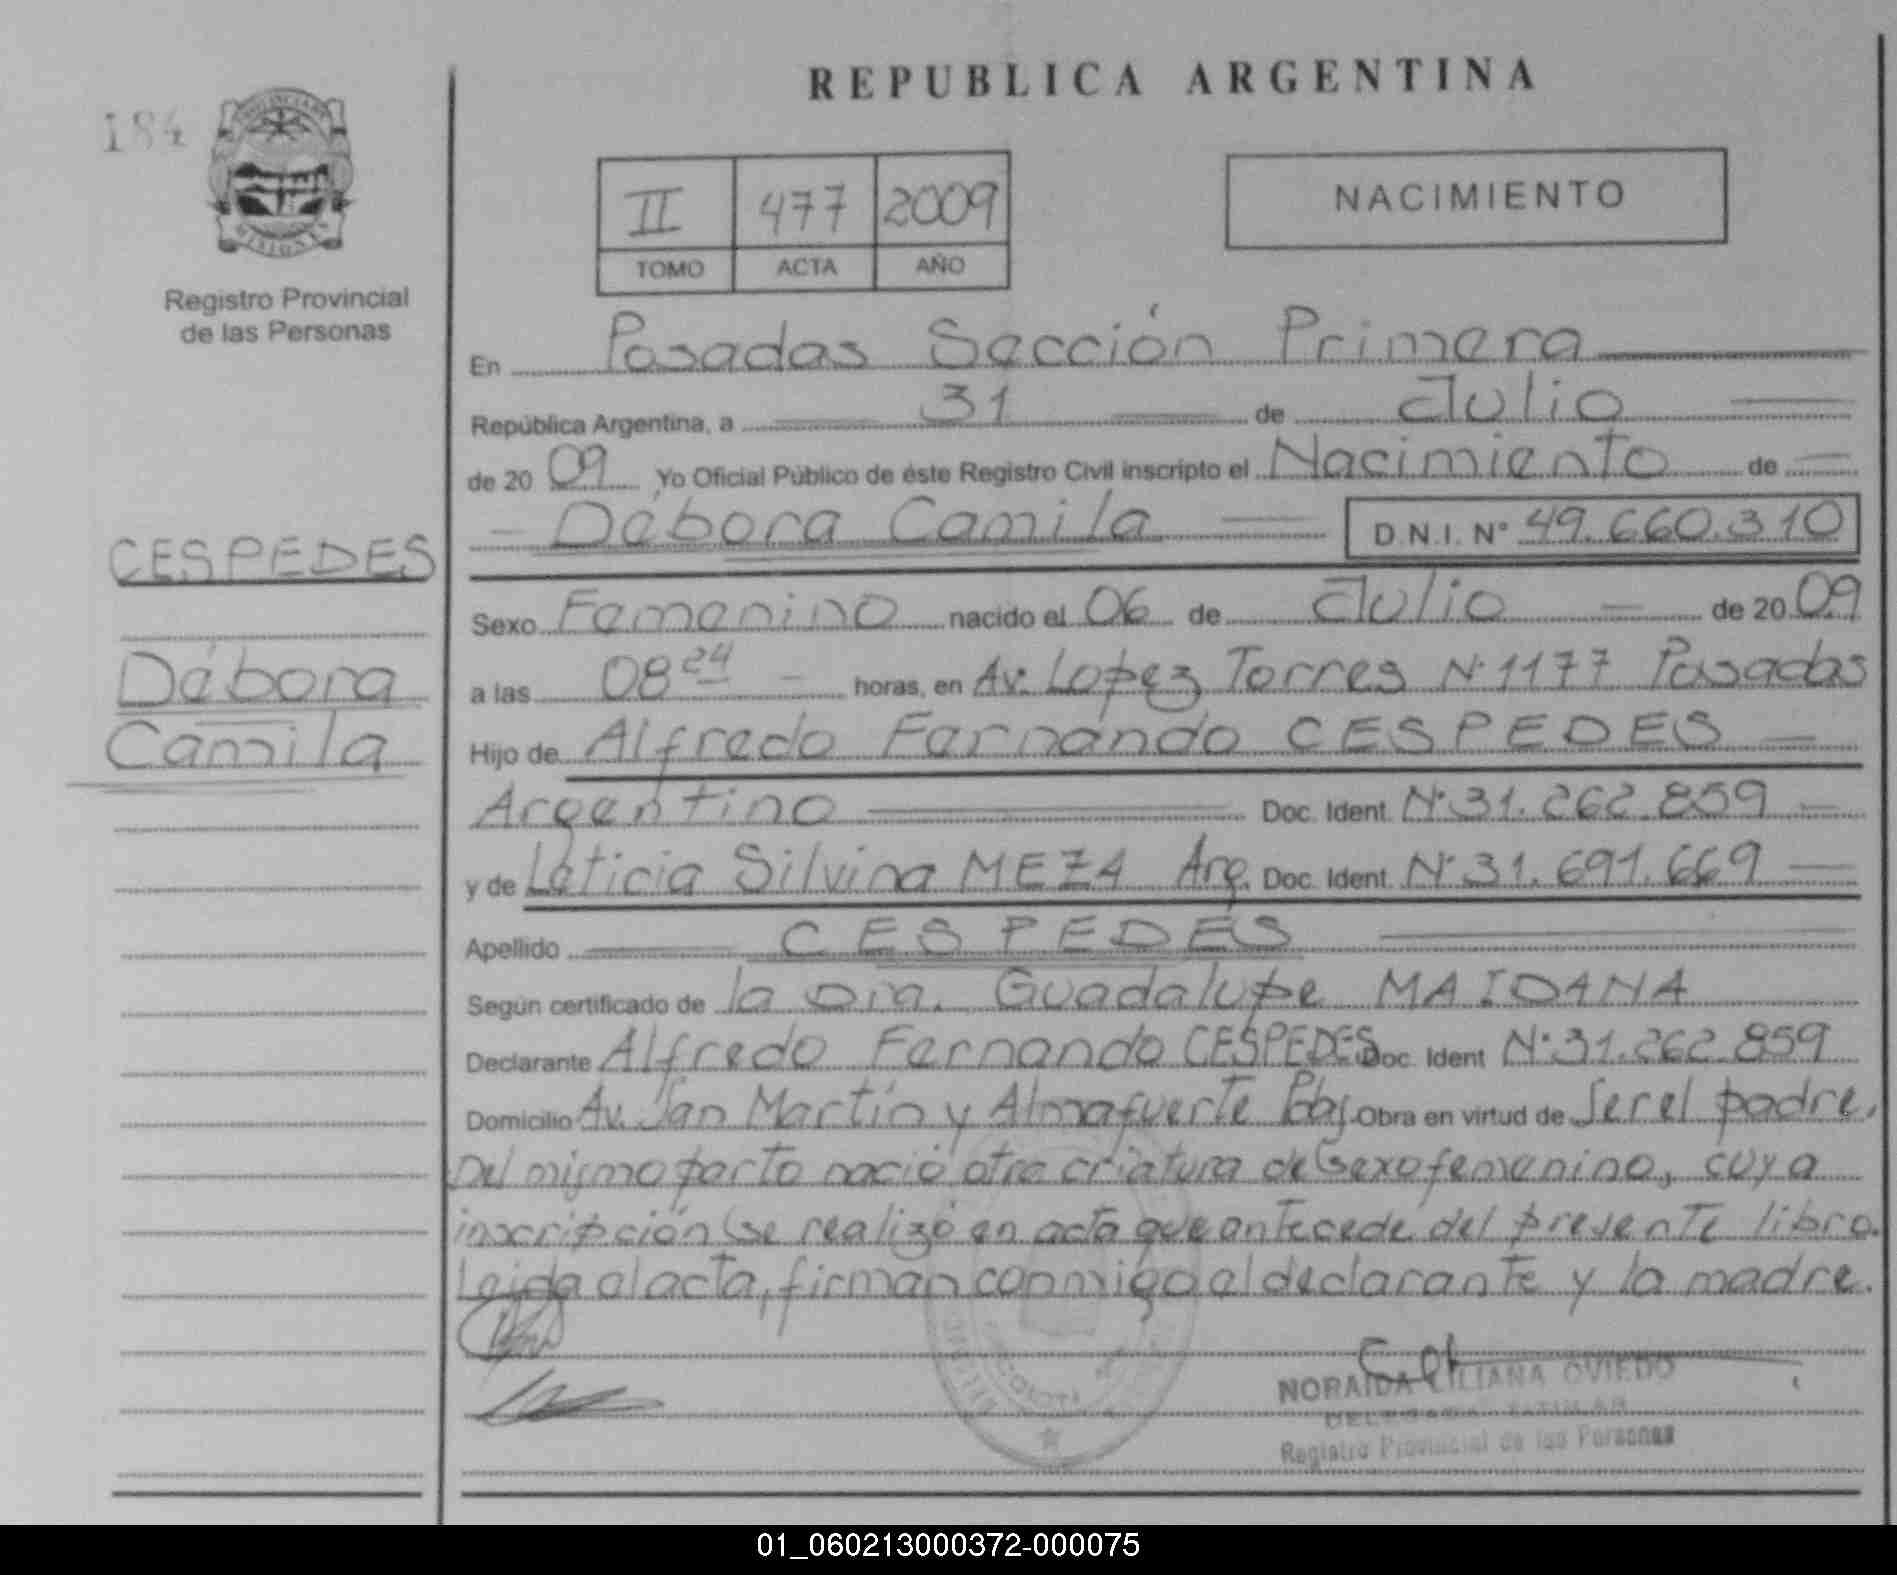 REPUBLICA ARGENTINA
184
PROVINCIA DE
MISIONES
Registro Provincial
de las Personas
II 477 2009
TOMO ACTA AÑO
NACIMIENTO
En Posadas Sección Primera
República Argentina, a 31 de Julio
de 20 09 Yo Oficial Público de éste Registro Civil inscripto el Nacimiento de
Débora Camila D.N.I. Nº 49.660.310
CESPEDES
Débora
Camila
Sexo Femenino nacido el 06 de Julio de 20 09
a las 08 24 horas, en Av. Lopez Torres Nº 1177 Posadas
Hijo de Alfredo Fernando CESPEDES
Argentino Doc. Ident. Nº 31.262.859
y de Leticia Silvina MEZA Arg. Doc. Ident. Nº 31.691.669
Apellido CESPEDES
Según certificado de la Dra. Guadalupe MAIDANA
Declarante Alfredo Fernando CESPEDES Doc. Ident Nº 31.262.859
Domicilio Av. San Martín y Almafuerte Obra en virtud de Ser el padre.
Del mismo parto nació otra criatura de sexo femenino, cuya
inscripción se realizó en acta que antecede del presente libro.
Leida el acta, firman conmigo el declarante y la madre.
NORAIDA LILIANA OVIEDO
DELEGADA TITULAR
Registro Provincial de las Personas
01_060213000372-000075